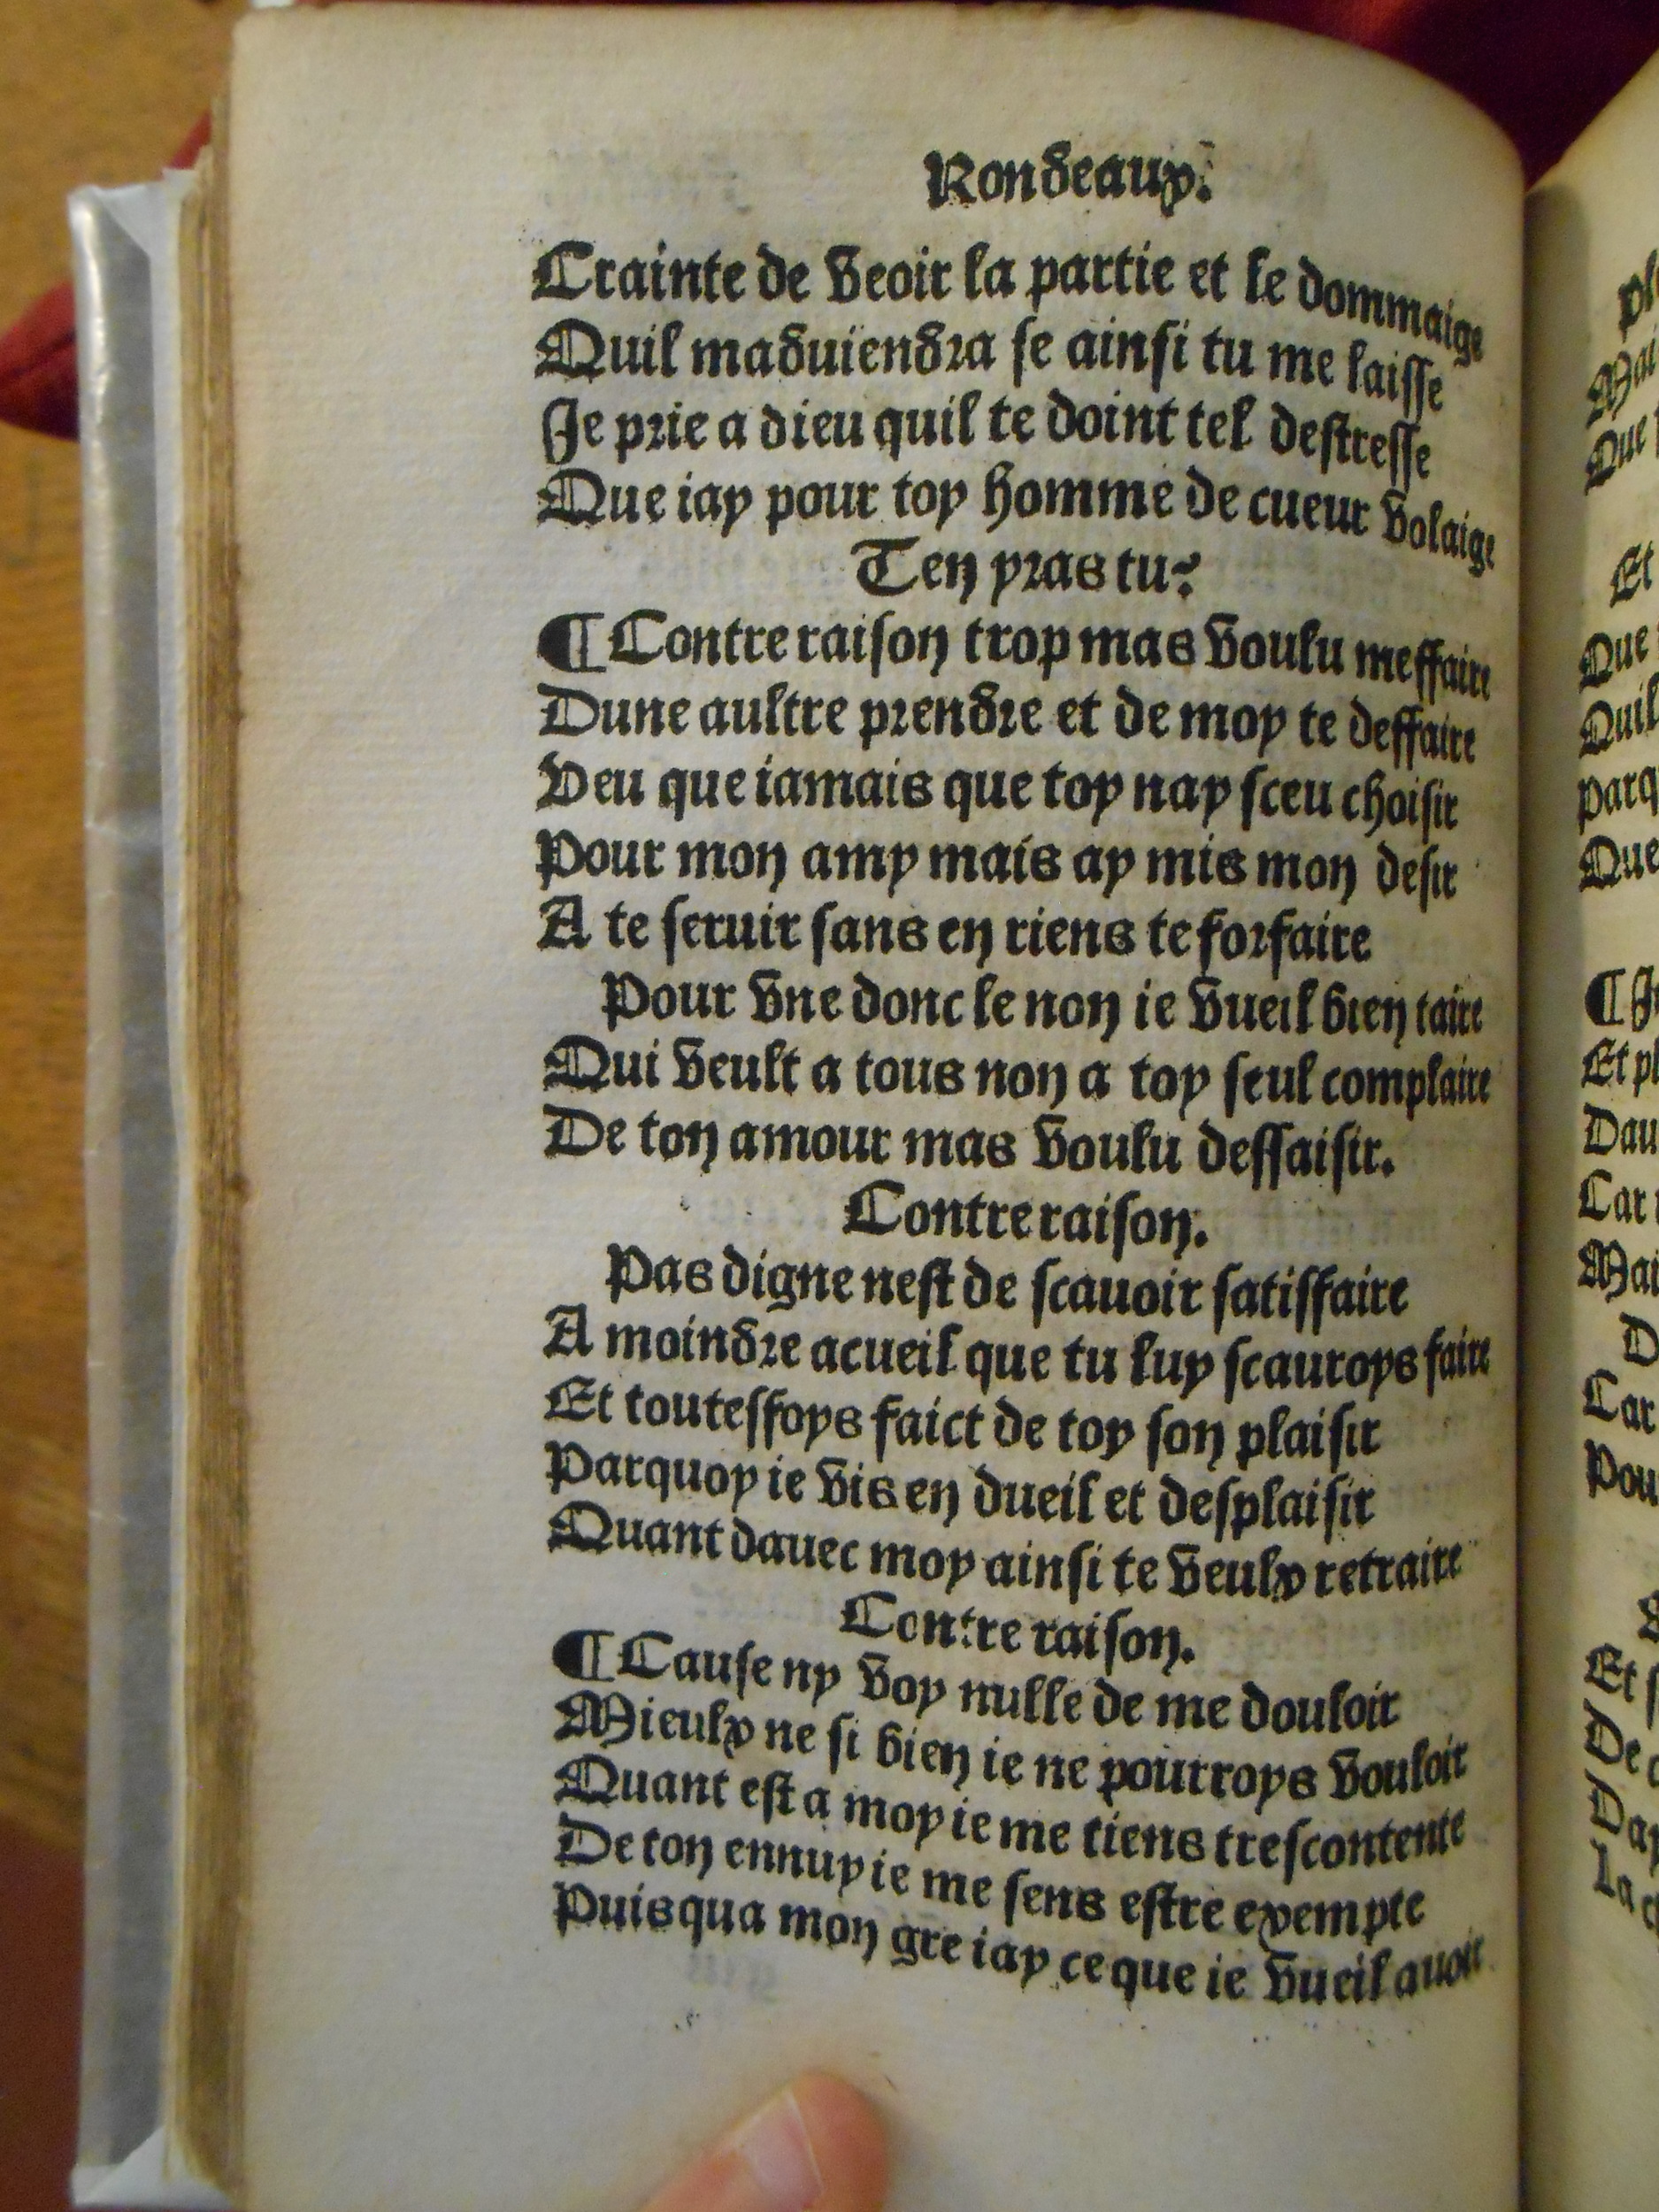 Rondeaux.
Crainte de veoir la partie et le dommaige
Quil maduiendra se ainsi tu me laisse
Je prie a dieu quil te doint tel destresse
Que iay pour toy homme de cueur volaige
Ten yras tu?
¶Contre raison trop mas voulu meffaire
Dune aultre prendre et de moy te deffaire
Veu que iamais que toy nay sceu choisir
Pour mon amy mais ay mis mon desir
A te seruir sans en riens te forfaire
Pour vne donc le non ie vueil bien taire
Qui veult a tous non a toy seul complaire
De ton amour mas voulu dessaisir.
Contre raison.
Pas digne nest de scauoir satisfaire
A moindre acueil que tu luy scauroys faire
Et toutesfoys faict de toy son plaisir
Parquoy ie vis en dueil et desplaisir
Quant dauec moy ainsi te veulx retraire
Contre raison.
¶Cause ny voy nulle de me douloir
Mieulx ne si bien ie ne pourroys vouloir
Quant est a moy ie me tiens trescontente
De ton ennuy ie me sens estre exempte
Puisqua mon gre iay ce que ie vueil auoir
Et
Que
Que
Et
Car
De